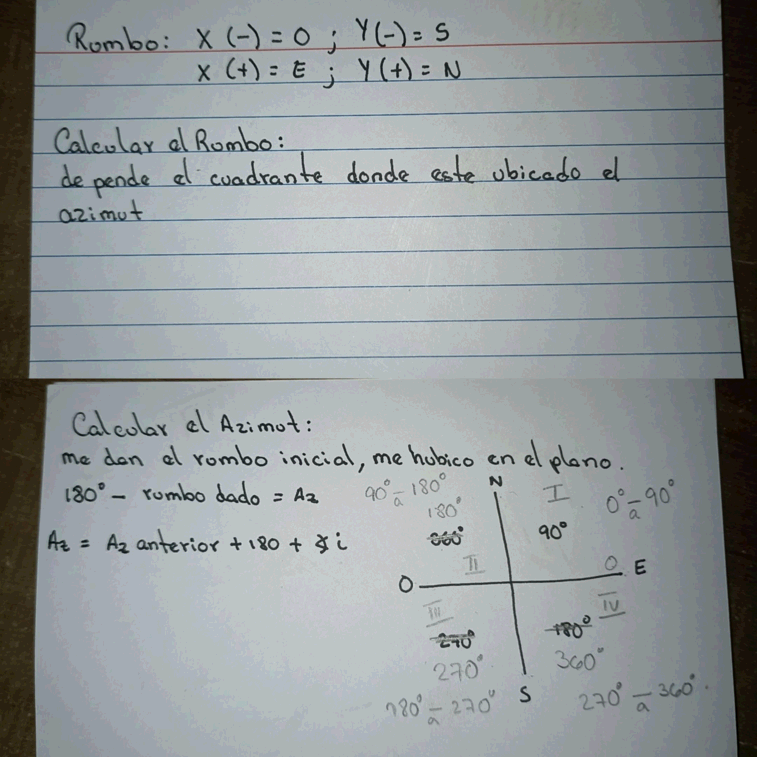 Rombo: X (-) = O ; Y(-) = S
X (+) = E ; Y(+) = N
Calcular el Rombo:
depende el cuadrante donde este ubicado el
azimut
Calcular el Azimut:
me dan el rombo inicial, me hubico en el plano.
180° - rombo dado = Az
Az = Az anterior + 180 + ∢i
N
90° a 180°
180°
I
0° a 90°
90°
II
O
0
E
III
IV
270°
180°
270°
360°
180° a 270°
S
270° a 360°.